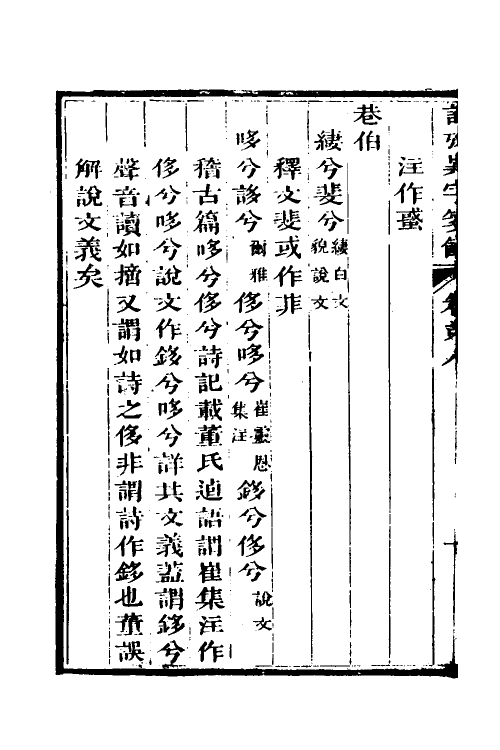 詩攷異字箋餘 卷第八 十
注作
巷伯
緀兮斐兮 緀白文貌說文
釋文斐或作非
哆兮誃兮 爾雅 侈兮哆兮 崔靈恩集注 鉹兮侈兮 說文
稽古篇哆兮侈兮詩記載董氏逌語謂崔集注作
侈兮哆兮說文作鉹兮哆兮詳其文義蓋謂鉹兮
聲音讀如摛又謂如詩之侈非謂詩作鉹也董誤
解說文義矣